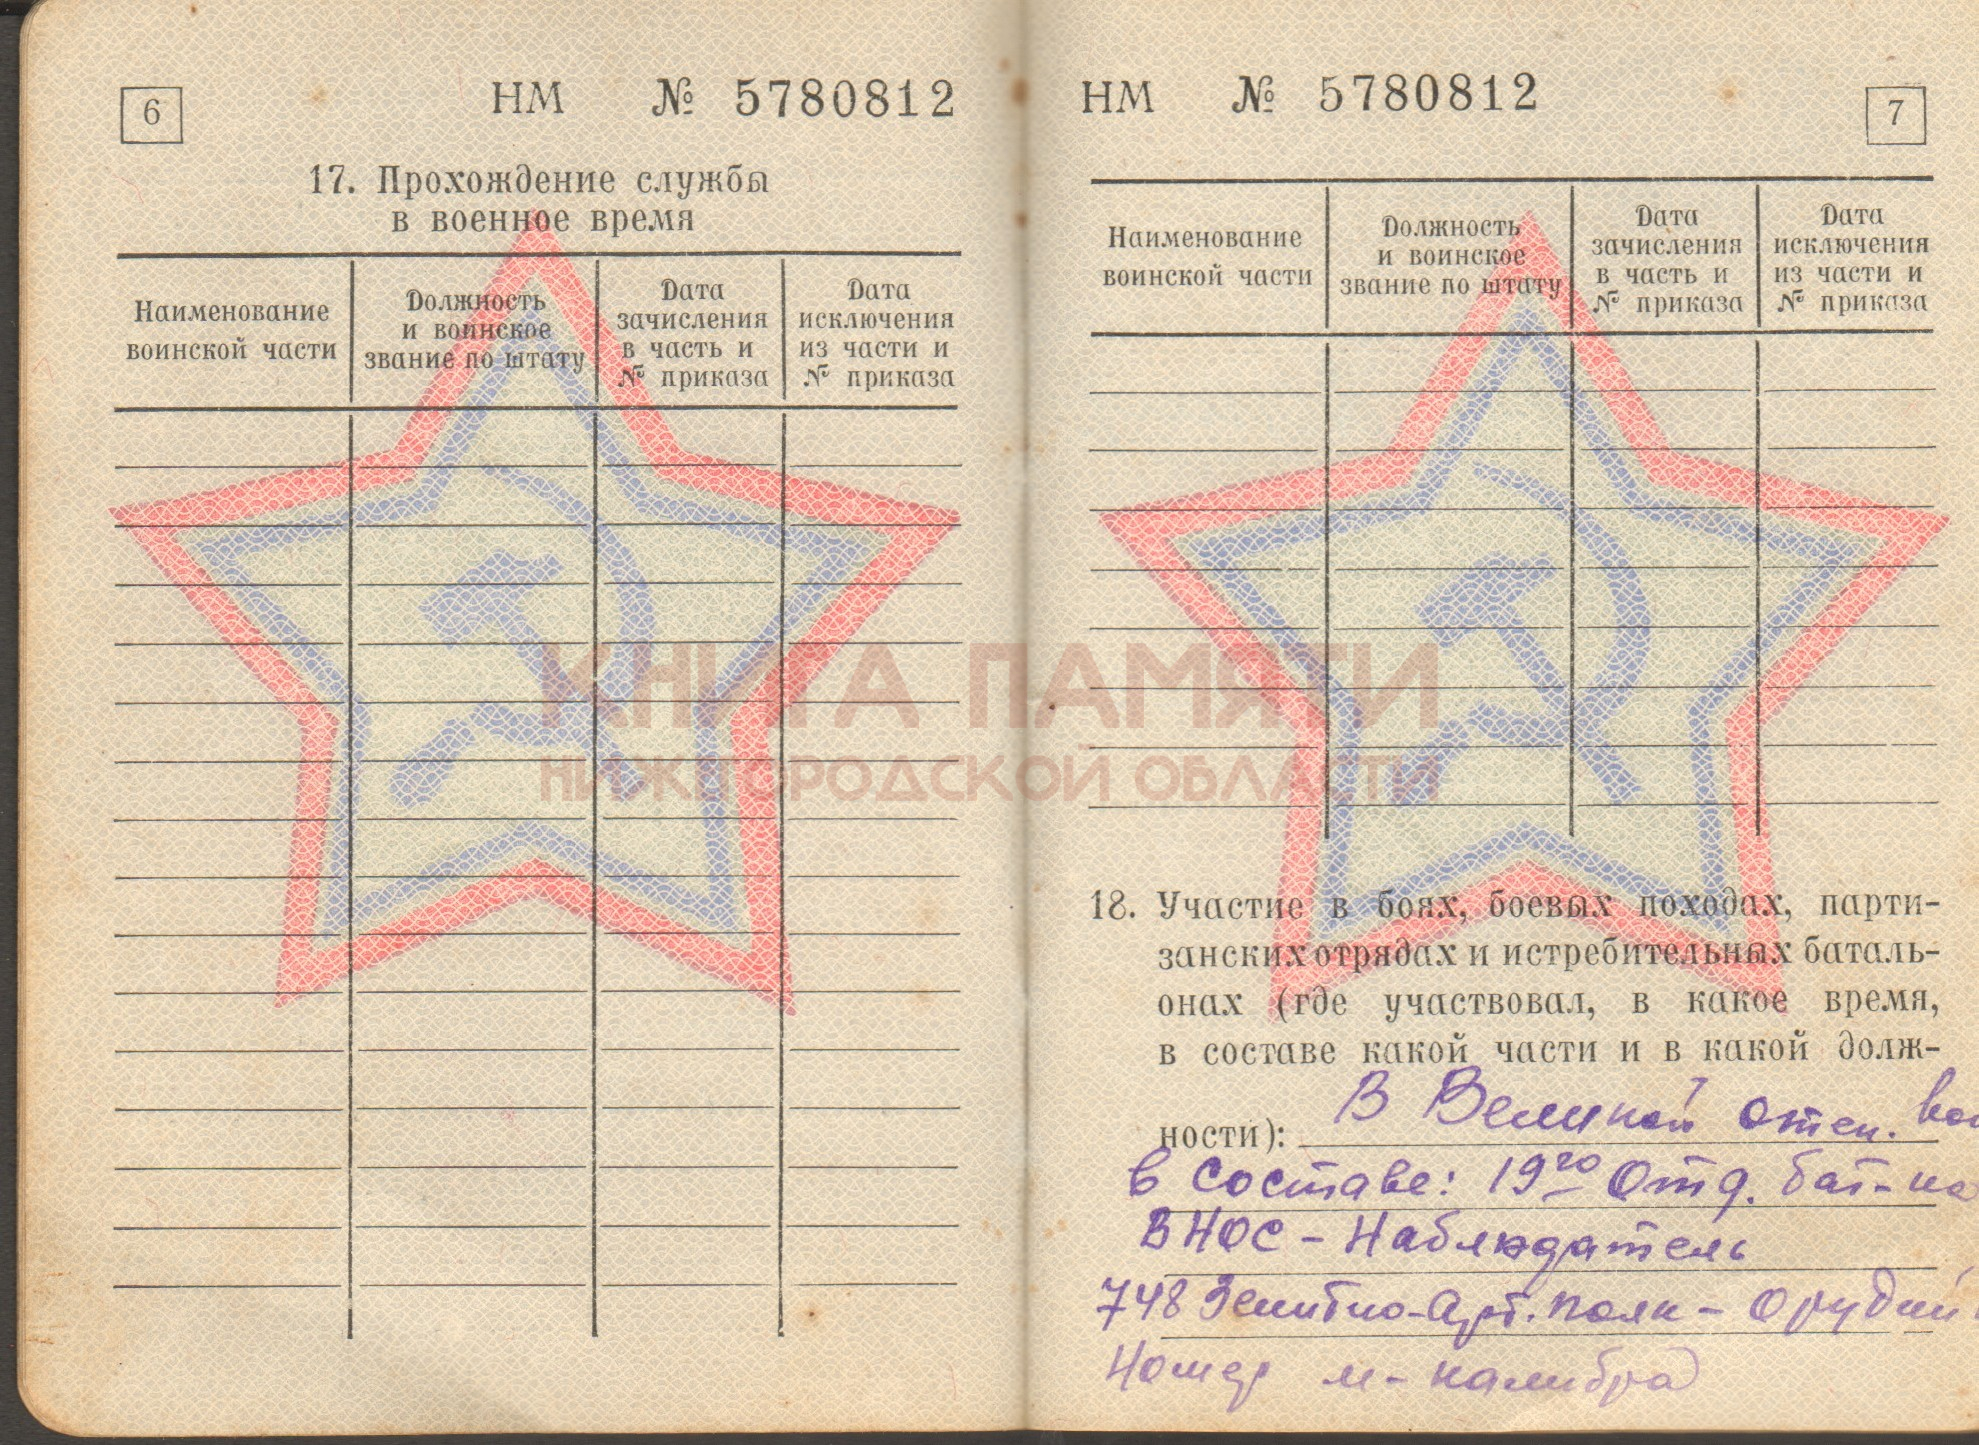 6
НМ № 5780812
17. Прохождение службы
в военное время
Наименование
воинской части
Должность
и воинское
звание по штату
Дата
зачисления
в часть и
№ приказа
Дата
исключения
из части и
№ приказа
НМ № 5780812
7
Наименование
воинской части
Должность
и воинское
звание по штату
Дата
зачисления
в часть и
№ приказа
Дата
исключения
из части и
№ приказа
КНИГА ПАМЯТИ
НИЖЕГОРОДСКОЙ ОБЛАСТИ
18. Участие в боях, боевых походах, парти-
занских отрядах и истребительных баталь-
онах (где участвовал, в какое время,
в составе какой части и в какой долж-
ности): В Великой отеч.
в составе: 19го Отд. бат-на
ВНОС - Наблюдатель
748 Зенитно-Арт. полк -
Номер м-калибра